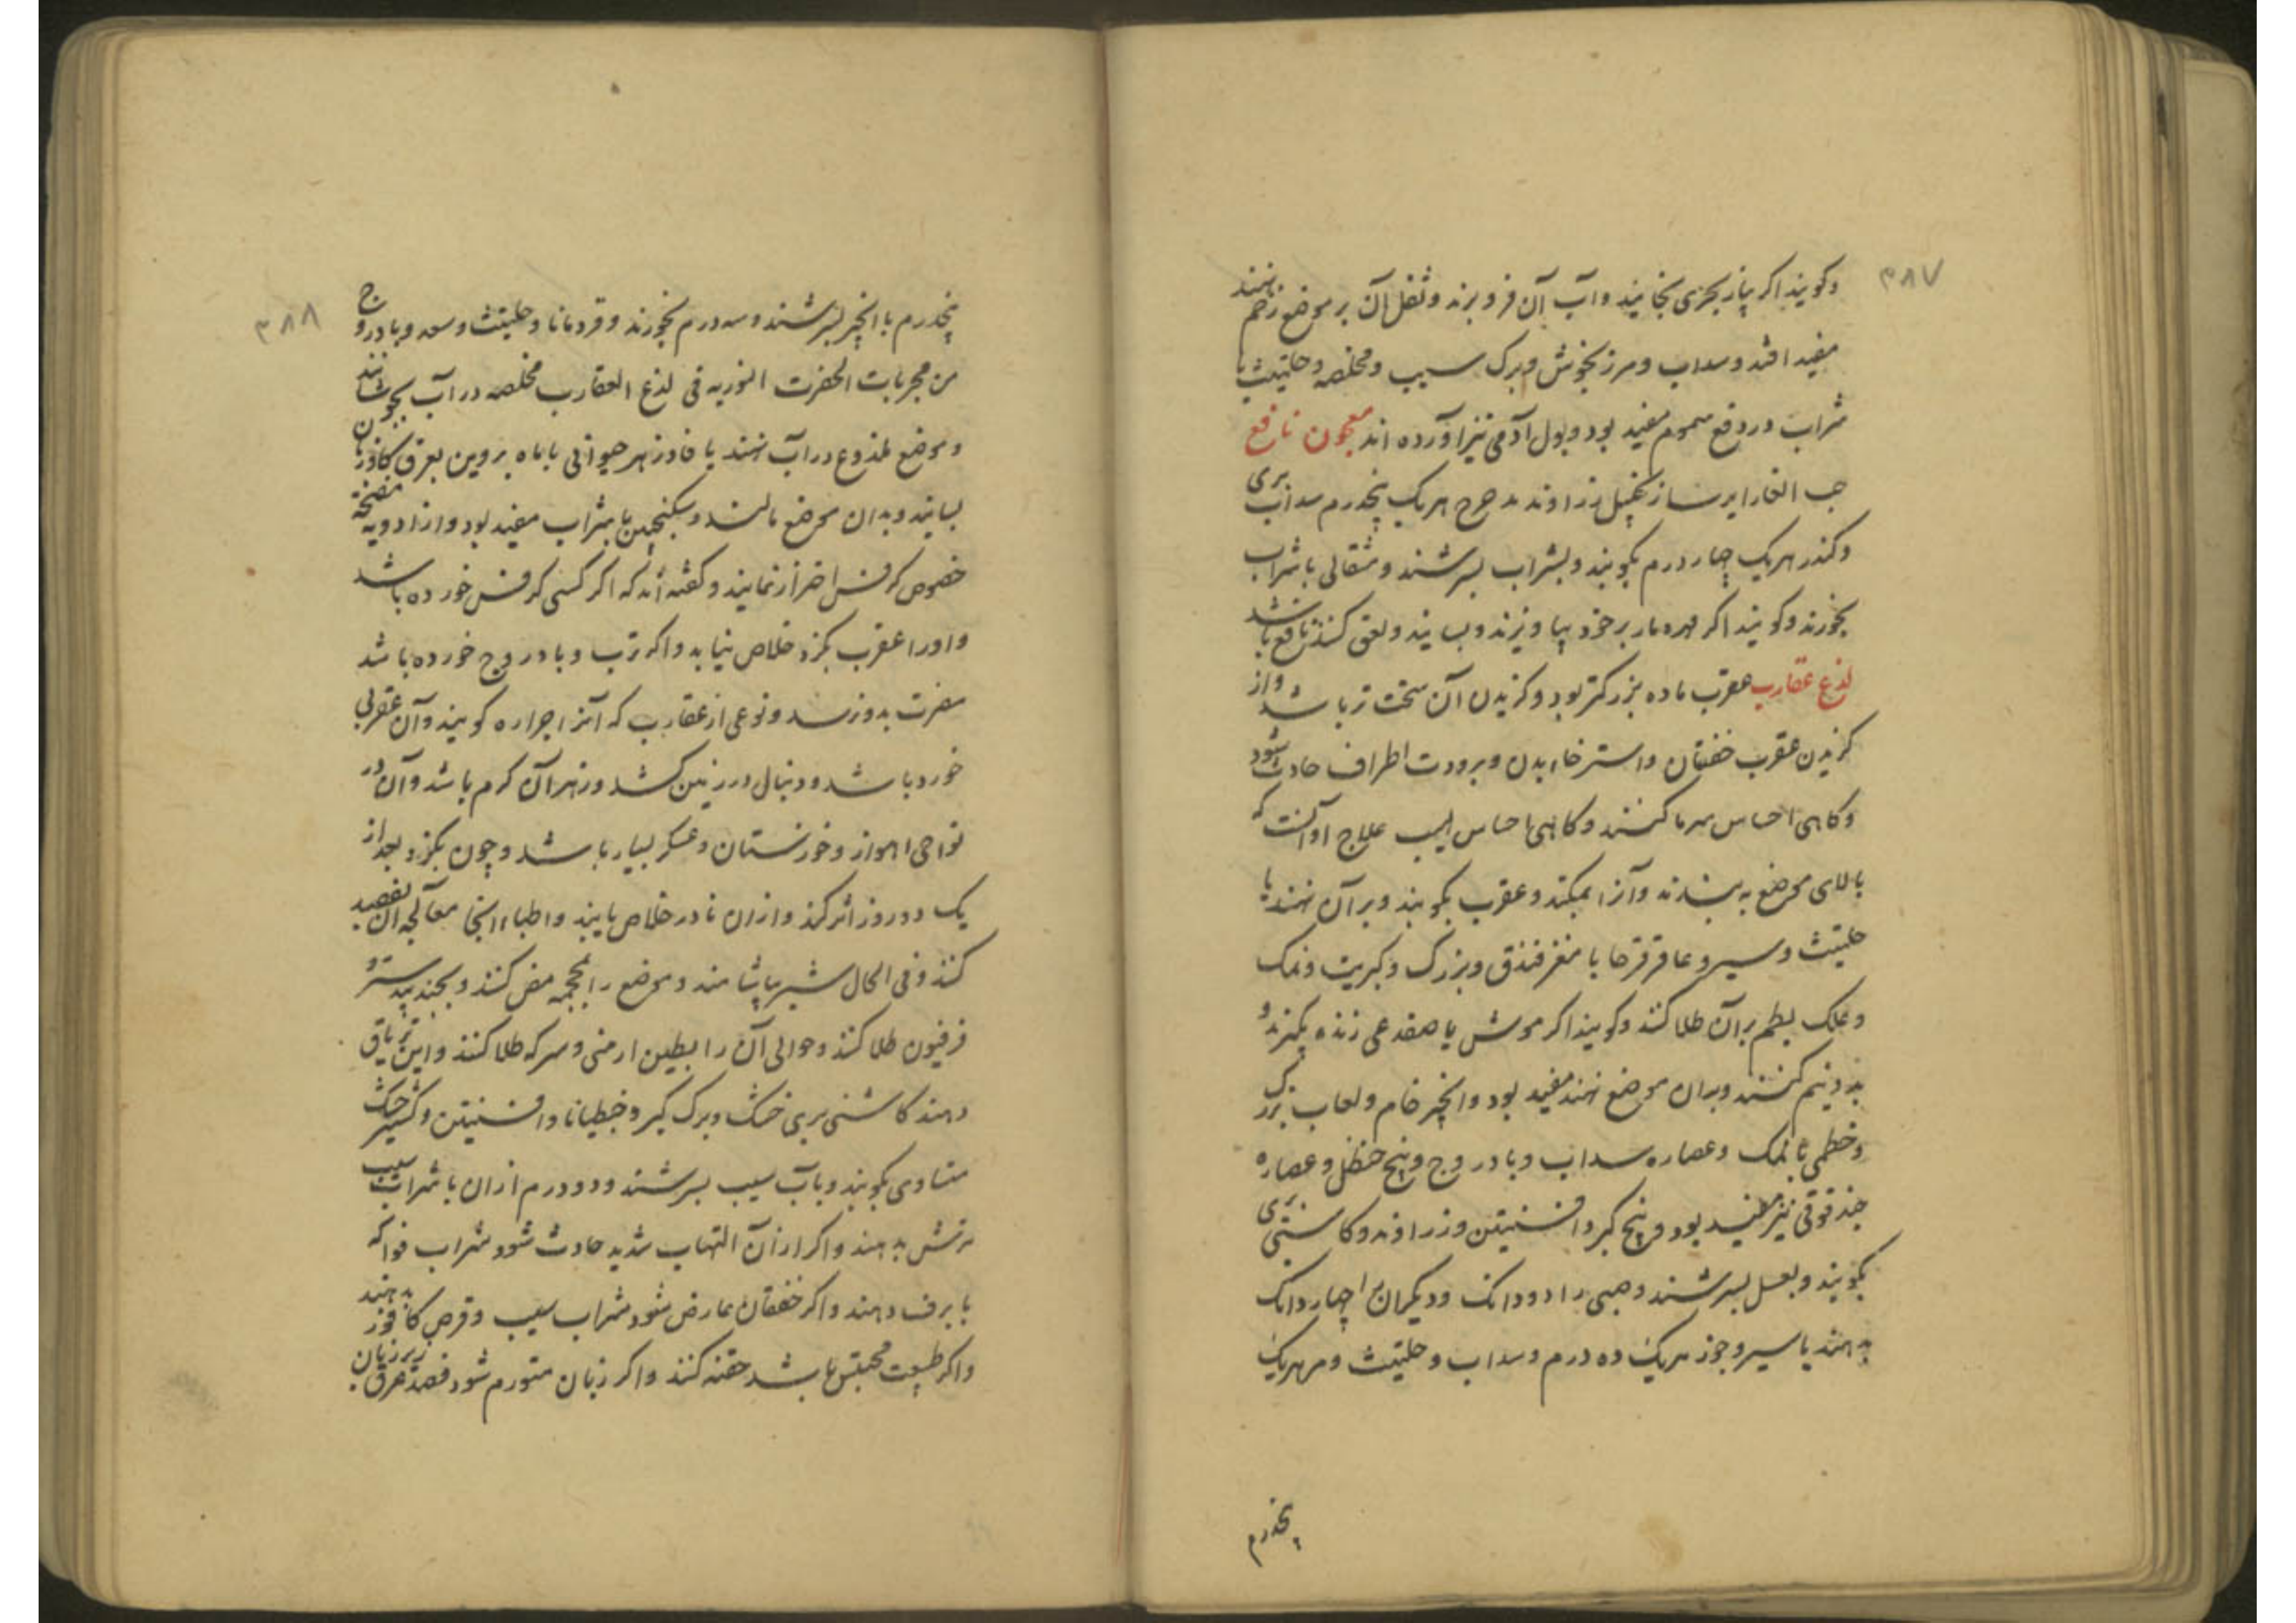 ۳۸۷
وکویند اکر پیاز بحری بخایند و آب آن فرو برند و ثفل آن بر موضع زخم نهند
مفید افتد و سداب و مرزنجوش و برک سیب و مخلصه و حلتیث با
شراب در دفع سموم مفید بود و بول آدمی نیز آورده اند معجون نافع
حب الغار ایرسا زنجبیل زراوند مدحرج هریک پنجدرم سداب بری
و کندر هریک چهار درم بکوبند و بشراب بسرشند و مثقالی با شراب
بخورند و کویند اکر مهره مار بر خود بیاویزند و بسایند و لعق کنند نافع باشد
لذع عقارب عقرب ماده بزرکتر بود و کزیدن آن سخت تر باشد و از
کزیدن عقرب خفقان و استرخاء بدن و برودت اطراف حادث شود
و کاهی احساس سرما کنند و کاهی احساس لهیب علاج او آنست که
بالای موضع به بندند و آنرا بمکند و عقرب بکوبند و بر آن نهند یا
حلتیث و سیر و عاقرقرحا با مغز فندق و بزرک و کبریت و نمک
و علک لبطم بر آن طلا کنند و کویند اکر موش یا صفدعی زنده بکیرند و
بدونیم کنند و بران موضع نهند مفید بود و انجیر خام و لعاب بزرک
و خطمی با نمک و عصاره سداب و بادروج و بیخ حنظل و عصاره
حندقوقی نیز مفید بود و بیخ کبر و افسنتین و زراوند و کاسنی بری
بکوبند و بعسل بسرشند و صبی را دو دانک و دیکران را چهار دانک
بدهند یا سیر و جوز هریک ده درم و سداب و حلتیث و مر هریک
پنجدرم
۳۸۸
پنجدرم با انجیر بسرشند و سه درم بخورند و قردمانا و حلیتث و سعد و بادروج
من مجربات الحضرت النوریه فی لذع العقارب مخلصه در آب بجوشانند
و موضع ملذوع در آب نهند یا فادزهر حیوانی با ماه پروین بعرق کاوزبان
بسایند و بدان موضع مالند و سکنجبین با شراب مفید بود و از ادویه مفتحه
خصوص کرفس احتراز نمایند و کفته اند که اکر کسی کرفس خورده باشد
و او را عقرب بکزد خلاص نیابد و اکر ترب و بادروج خورده باشد
مضرت بدو نرسد و نوعی از عقارب که آنرا جراره کویند و آن عقربی
خورد باشد و دنبال در زمین کشد و زهر آن کرم باشد و آن در
نواحی اهواز و خوزستان و عسکر بسیار باشد و چون بکزد بعد از
یک دو روز اثر کند و از ان نادر خلاص یابند و اطباء انجا معالجه آن بفصد
کنند و فی الحال شیر بیاشامند و موضع را بمحجمه مص کنند و بجندبیدستر و
فرفیون طلا کنند و حوالی آن را بطین ارمنی و سرکه طلا کنند و این تریاق
دهند کاسنی بری خشک و برک کبر و جنطیانا و افسنتین و کشنیز خشک
متساوی بکوبند و بآب سیب بسرشند و دو درم از ان با شراب سیب
ترش بدهند و اکر از آن التهاب شدید حادث شود شراب فواکه
با برف دهند و اکر خفقان عارض شود شراب سیب و قرص کافور بدهند
و اکر طبیعت محتبس باشد حقنه کنند و اکر زبان متورم شود فصد عرق زیر زبان